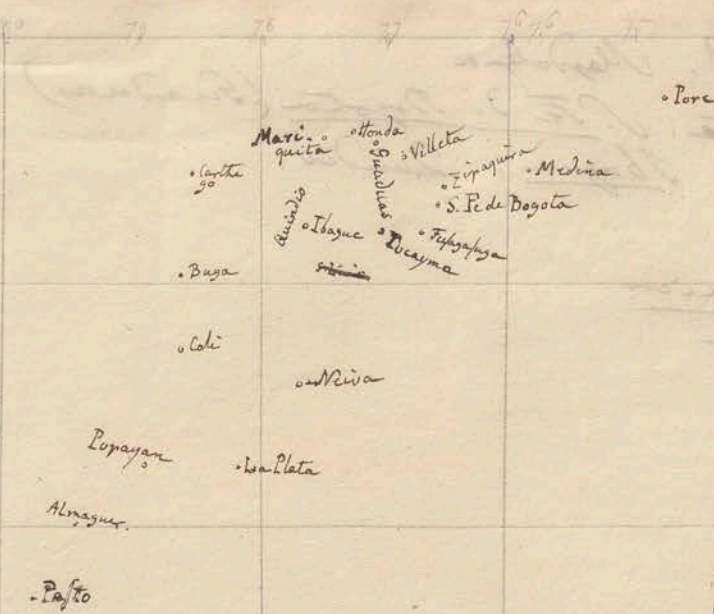 79
78
77
76
75
Pore
Mari.
quita
Honda
Villeta
Guaduas
Zipaquira
Medina
Carthe
go
S. Fe de Bogota
Quindio
Ibague
Tocayma
Fusagasuga
Buga
Cali
Neiva
Popayan
La Plata
Almaguer.
Pasto